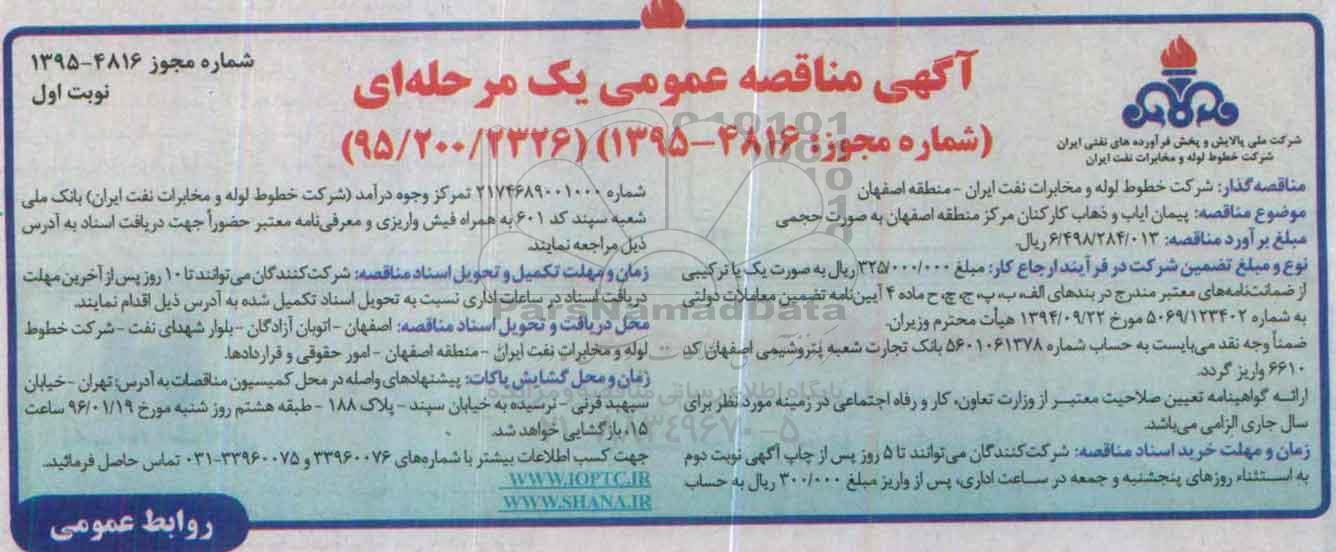 شماره مجوز ۴۸۱۶-۱۳۹۵
نوبت اول
آگهی مناقصه عمومی یک مرحله‌ای
(شماره مجوز: ۴۸۱۶-۱۳۹۵) (۹۵/۲۰۰/۲۳۲۶)
شرکت ملی پالایش و پخش فرآورده های نفتی ایران
شرکت خطوط لوله و مخابرات نفت ایران
مناقصه‌گذار: شرکت خطوط لوله و مخابرات نفت ایران - منطقه اصفهان
موضوع مناقصه: پیمان ایاب و ذهاب کارکنان مرکز منطقه اصفهان به صورت حجمی
مبلغ برآورد مناقصه: ۶/۴۹۸/۲۸۴/۰۱۳ ریال
نوع و مبلغ تضمین شرکت در فرآیند ارجاع کار: مبلغ ۳۲۵/۰۰۰/۰۰۰ ریال به صورت یک یا ترکیبی
از ضمانتنامه‌های معتبر مندرج در بندهای الف، ب، پ، ج، چ، ح ماده ۴ آیین‌نامه تضمین معاملات دولتی
به شماره ۵۰۶۹/۱۲۳۴۰۲ مورخ ۱۳۹۴/۰۹/۲۲ هیأت محترم وزیران.
ضمناً وجه نقد می‌بایست به حساب شماره ۵۶۰۱۰۶۱۳۷۸ بانک تجارت شعبه پتروشیمی اصفهان کد
۶۶۱۰ واریز گردد.
ارائه گواهینامه تعیین صلاحیت معتبر از وزارت تعاون، کار و رفاه اجتماعی در زمینه مورد نظر برای
سال جاری الزامی می‌باشد.
زمان و مهلت خرید اسناد مناقصه: شرکت‌کنندگان می‌توانند تا ۵ روز پس از چاپ آگهی نوبت دوم
به استثناء روزهای پنجشنبه و جمعه در ساعت اداری، پس از واریز مبلغ ۳۰۰/۰۰۰ ریال به حساب
شماره ۲۱۷۴۶۸۹۰۰۱۰۰۰ تمرکز وجوه درآمد (شرکت خطوط لوله و مخابرات نفت ایران) بانک ملی
شعبه سپند کد ۶۰۱ به همراه فیش واریزی و معرفی‌نامه معتبر حضوراً جهت دریافت اسناد به آدرس
ذیل مراجعه نمایند.
زمان و مهلت تکمیل و تحویل اسناد مناقصه: شرکت‌کنندگان می‌توانند تا ۱۰ روز پس از آخرین مهلت
دریافت اسناد در ساعات اداری نسبت به تحویل اسناد تکمیل شده به آدرس ذیل اقدام نمایند.
محل دریافت و تحویل اسناد مناقصه: اصفهان - اتوبان آزادگان - بلوار شهدای نفت - شرکت خطوط
لوله و مخابرات نفت ایران - منطقه اصفهان - امور حقوقی و قراردادها.
زمان و محل گشایش پاکات: پیشنهادهای واصله در محل کمیسیون مناقصات به آدرس: تهران - خیابان
سپهبد قرنی - نرسیده به خیابان سپند - پلاک ۱۸۸ - طبقه هشتم روز شنبه مورخ ۹۶/۰۱/۱۹ ساعت
۱۵، بازگشایی خواهد شد.
جهت کسب اطلاعات بیشتر با شماره‌های ۳۳۹۶۰۰۷۶ و ۳۳۹۶۰۰۷۵-۰۳۱ تماس حاصل فرمائید.
WWW.IOPTC.IR
WWW.SHANA.IR
روابط عمومی
ParsNamadData